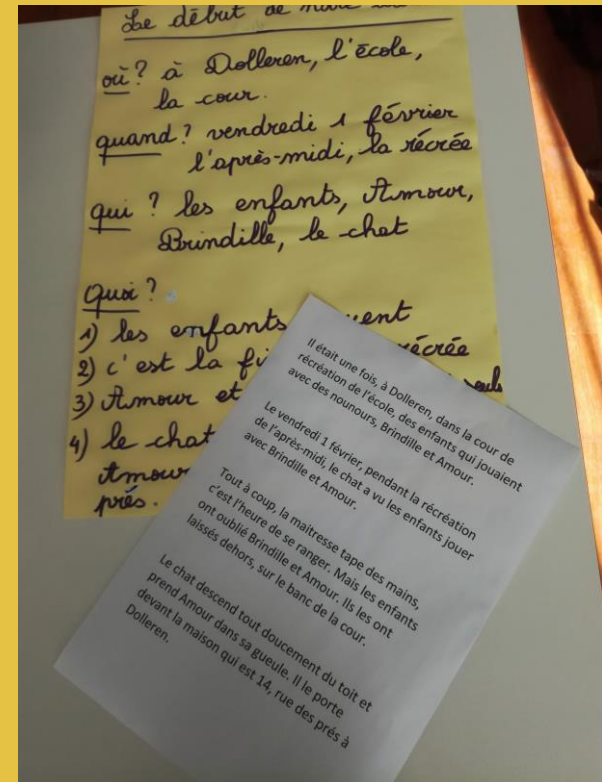 Le début de
où? à Dolleren, l'école,
la cour.
quand? vendredi 1 février
l'après-midi, la récrée
qui? les enfants, Amour,
Brindille, le chat
Quoi?
1) les enfants
2) c'est la récrée
3) Amour et
4) le chat
Amour
prés.
Il était une fois, à Dolleren, dans la cour de
récréation de l'école, des enfants qui jouaient
avec des nounours, Brindille et Amour.
Le vendredi 1 février, pendant la récréation
de l'après-midi, le chat a vu les enfants jouer
avec Brindille et Amour.
Tout à coup, la maitresse tape des mains,
c'est l'heure de se ranger. Mais les enfants
ont oublié Brindille et Amour. Ils les ont
laissés dehors, sur le banc de la cour.
Le chat descend tout doucement du toit et
prend Amour dans sa gueule. Il le porte
devant la maison qui est 14, rue des prés à
Dolleren.